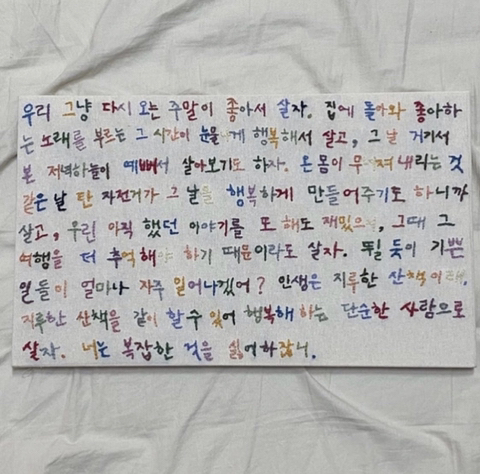 우리 그냥 다시 오는 주말이 좋아서 살자. 집에 돌아와 좋아하
는 노래를 부르는 그 시간이 눈물 게 행복해서 살고, 그 날 거기서
본 저녁하늘이 예뻐서 살아보기도 하자. 온몸이 무 져내리는 것
같은 날 탄 자전거가 그 날을 행복하게 만들어주기도 하니까
살고, 우린 아직 했던 이야기를 또 해도 재밌으 , 그때 그
여행을 더 추억해야 하기 때문이라도 살자. 뛸 듯이 기쁜
일들이 얼마나 자주 일어나겠어? 인생은 지루한 산책이래.
지루한 산책을 같이 할 수 있어 행복해 하는 단순한 사람으로
살자. 너는 복잡한 것을 싫어하잖니.